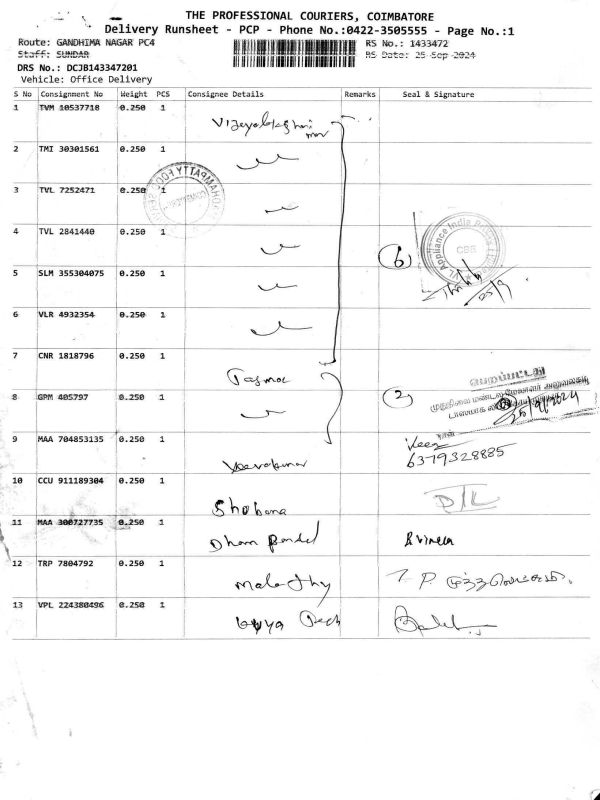 THE PROFESSIONAL COURIERS, COIMBATORE
Delivery Runsheet - PCP - Phone No.:0422-3505555 - Page No.:1
Route: GANDHIMA NAGAR PC4
RS No.: 1433472
Staff: SUNDAR
RS Date: 25 Sep 2024
DRS No.: DCJB143347201
Vehicle: Office Delivery
S No Consignment No Weight PCS Consignee Details Remarks Seal & Signature
1 TVM 10537718 0.250 1
2 TMI 30301561 0.250 1
3 TVL 7252471 0.250 1
4 TVL 2841440 0.250 1
6
CBE
25/9
5 SLM 355304075 0.250 1
6 VLR 4932354 0.250 1
7 CNR 1818796 0.250 1 Tasmac
பெறப்பட்டது
8 GPM 405797 0.250 1
2
25/9/2024
9 MAA 704853135 0.250 1 Veerakumar
Veer
6379328885
10 CCU 911189304 0.250 1 Shobana
11 MAA 300727735 0.250 1 Dham
12 TRP 7804792 0.250 1 Malathy
T. P.
13 VPL 224380496 0.250 1